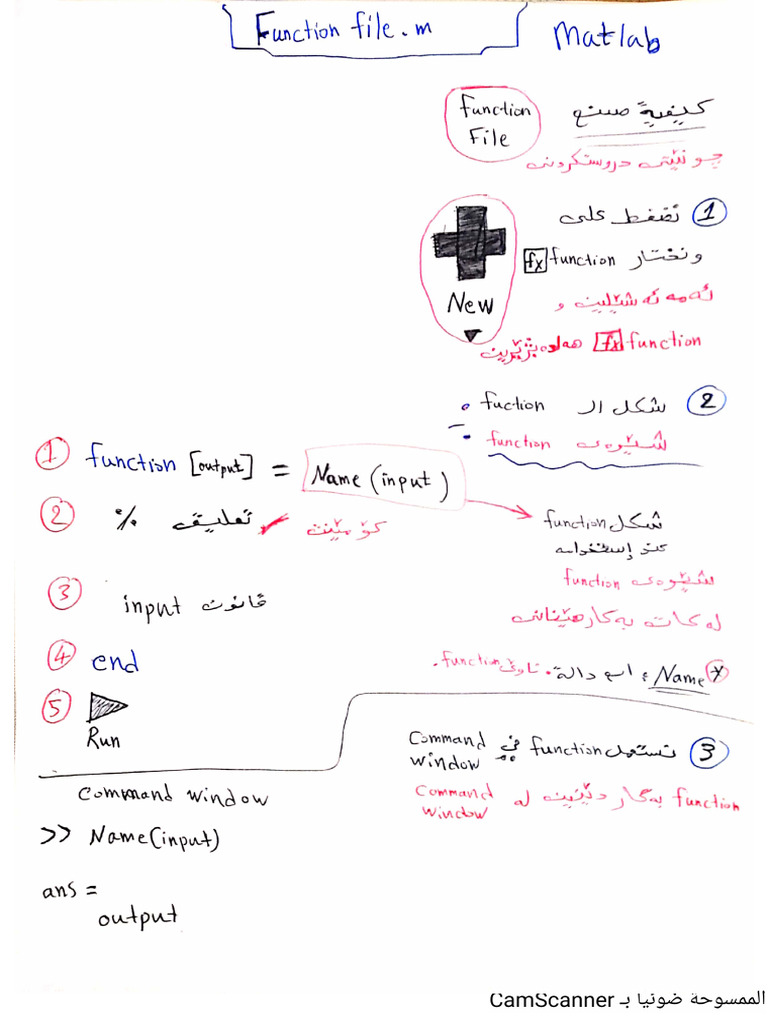 Function file.m
Matlab
كيفية صنع function File
چونێتی دروستكردنی
① نضغط على New
ونختار fx function
ئەمە ئەشێلین و
fx function هەلدەبژێرین
② شكل الـ fuction
شێوەی function
① function [output] = Name (input)
② % تعليق كۆمێنت
③ input قانون
④ end
⑤ Run
شكل function
عند إستخدامه
شێوەی function
لە كات بەكارهێنانی
* Name: اسم دالة. ناوێ function.
③ نستعمل function في Command window
function بەكار دێنین لە Command window
Command window
>> Name(input)
ans =
output
الممسوحة ضوئيا بـ CamScanner